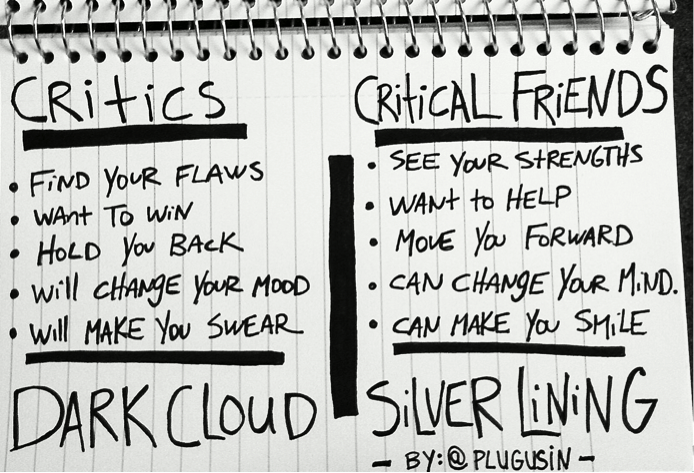 CRitiCS
FiND YOUR FLAWS
WANt TO WiN
HOLD YOU BACK
Will CHANGE YOUR MOOD
Will MAKE YOU SWEAR
DARK CLOUD
CRitiCAL FRiENDS
SEE YOUR StRENGTHS
WANt to HELP
MOVE YOU FORWARD
CAN CHANGE YOUR MiND.
CAN MAKE YOU SMiLE
SiLVER LiNiNG
- BY: @PLUGUSiN -